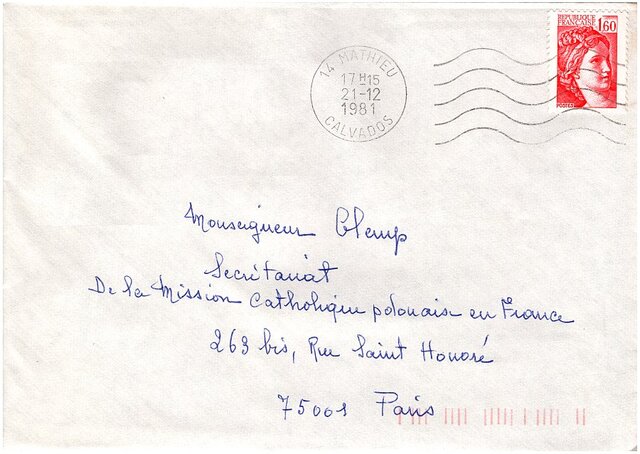 REPUBLIQUE
FRANÇAISE
1,60
POSTES
14 MATHIEU
17 H 15
21-12
1981
CALVADOS
Monseigneur Glemp
Secrétariat
De la Mission Catholique polonais en France
263 bis, Rue Saint Honoré
75001 Paris